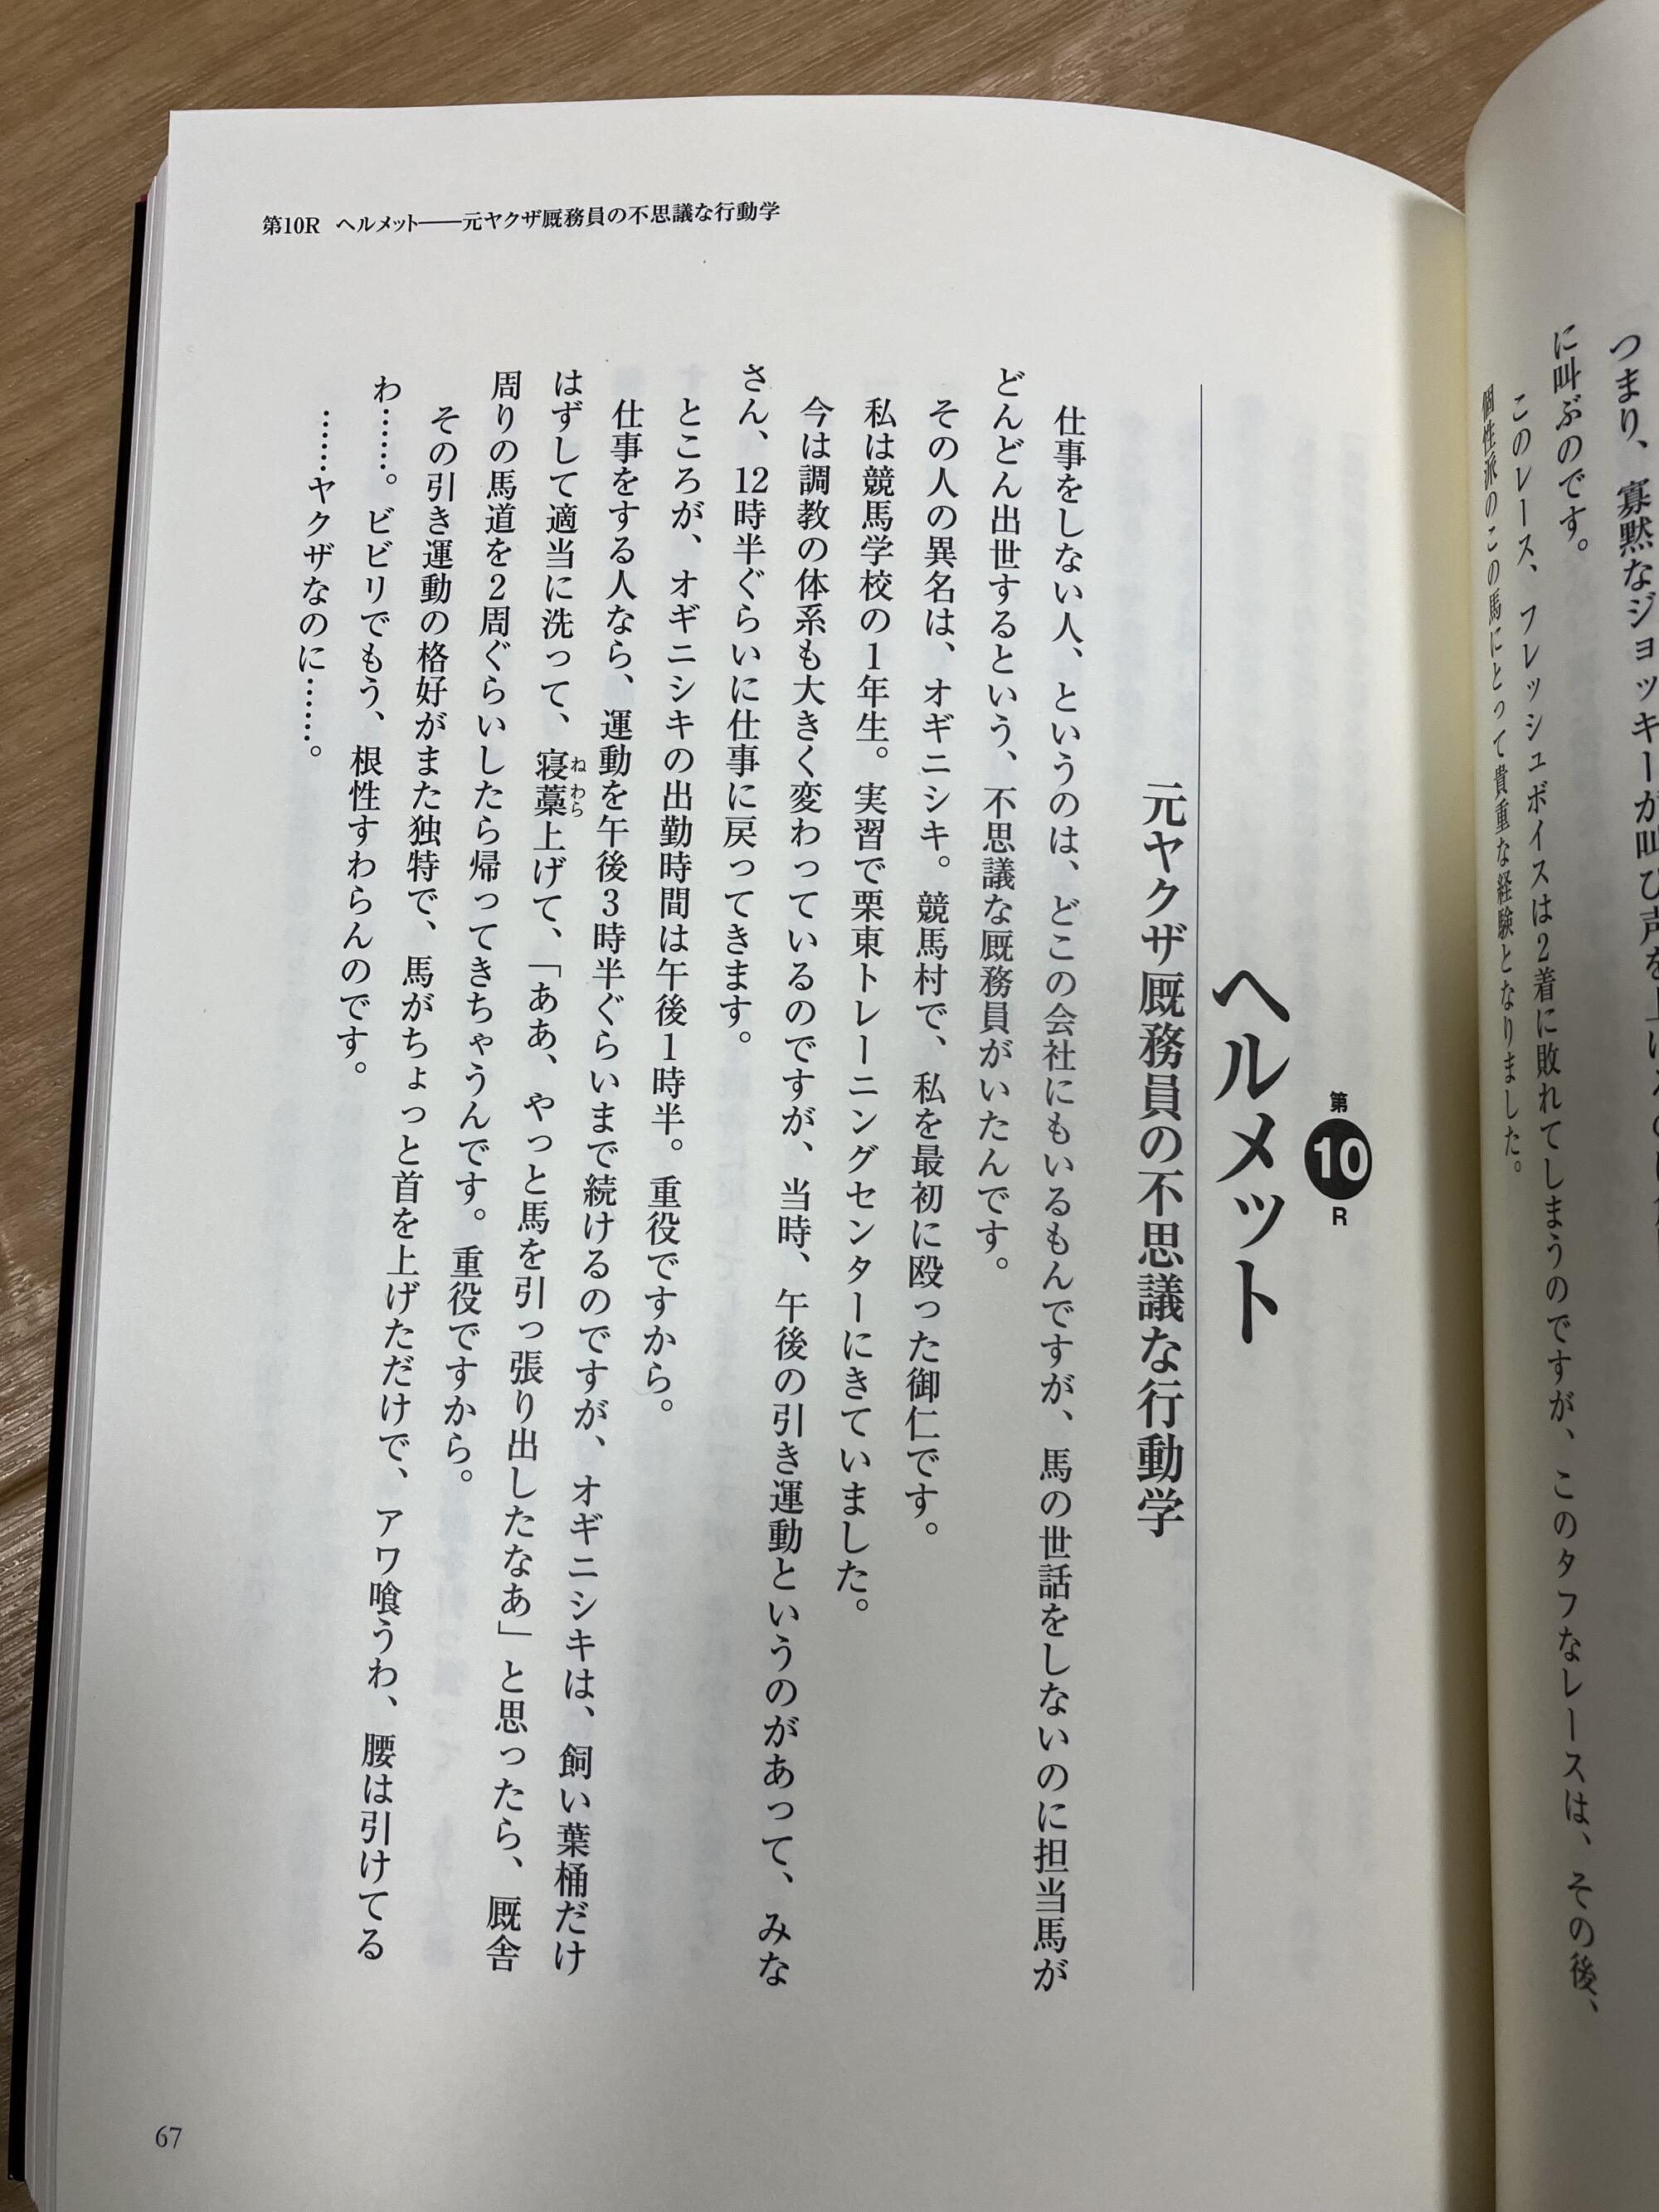 つまり、寡黙なジョッキーが叫び声を上げ
に叫ぶのです。
このレース、フレッシュボイスは2着に敗れてしまうのですが、このタフなレースは、その後、
個性派のこの馬にとって貴重な経験となりました。
第10R ヘルメット――元ヤクザ厩務員の不思議な行動学
第10R
ヘルメット
元ヤクザ厩務員の不思議な行動学
仕事をしない人、というのは、どこの会社にもいるもんですが、馬の世話をしないのに担当馬が
どんどん出世するという、不思議な厩務員がいたんです。
その人の異名は、オギニシキ。競馬村で、私を最初に殴った御仁です。
私は競馬学校の1年生。実習で栗東トレーニングセンターにきていました。
今は調教の体系も大きく変わっているのですが、当時、午後の引き運動というのがあって、みな
さん、12時半ぐらいに仕事に戻ってきます。
ところが、オギニシキの出勤時間は午後1時半。重役ですから。
仕事をする人なら、運動を午後3時半ぐらいまで続けるのですが、オギニシキは、飼い葉桶だけ
はずして適当に洗って、寝藁上げて、「ああ、やっと馬を引っ張り出したなあ」と思ったら、厩舎
ねわら
周りの馬道を2周ぐらいしたら帰ってきちゃうんです。重役ですから。
その引き運動の格好がまた独特で、馬がちょっと首を上げただけで、アワ喰うわ、腰は引けてる
わ……。ビビリでもう、根性すわらんのです。
……ヤクザなのに……。
67